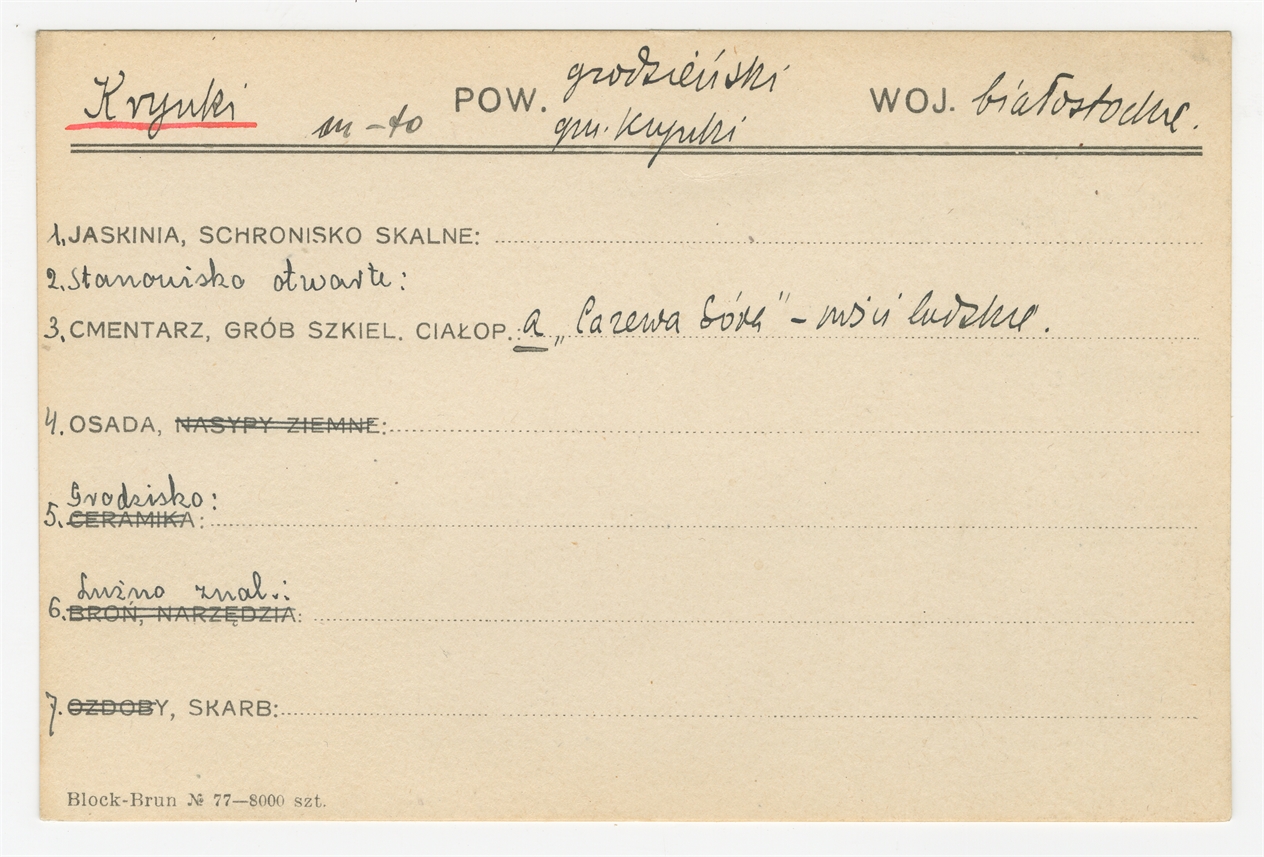 Krynki m-to POW. grodzieński WOJ. białostockie.
gm. Krynki
1. JASKINIA, SCHRONISKO SKALNE:
2. Stanowisko otwarte:
3. CMENTARZ, GRÓB SZKIEL. CIAŁOP.: a „Carewa Góra" – ludzkie.
4. OSADA, NASYPY ZIEMNE:
Grodzisko:
5. CERAMIKA:
Luźno znal.:
6. BROŃ, NARZĘDZIA:
7. OZDOBY, SKARB:
Block-Brun № 77—8000 szt.